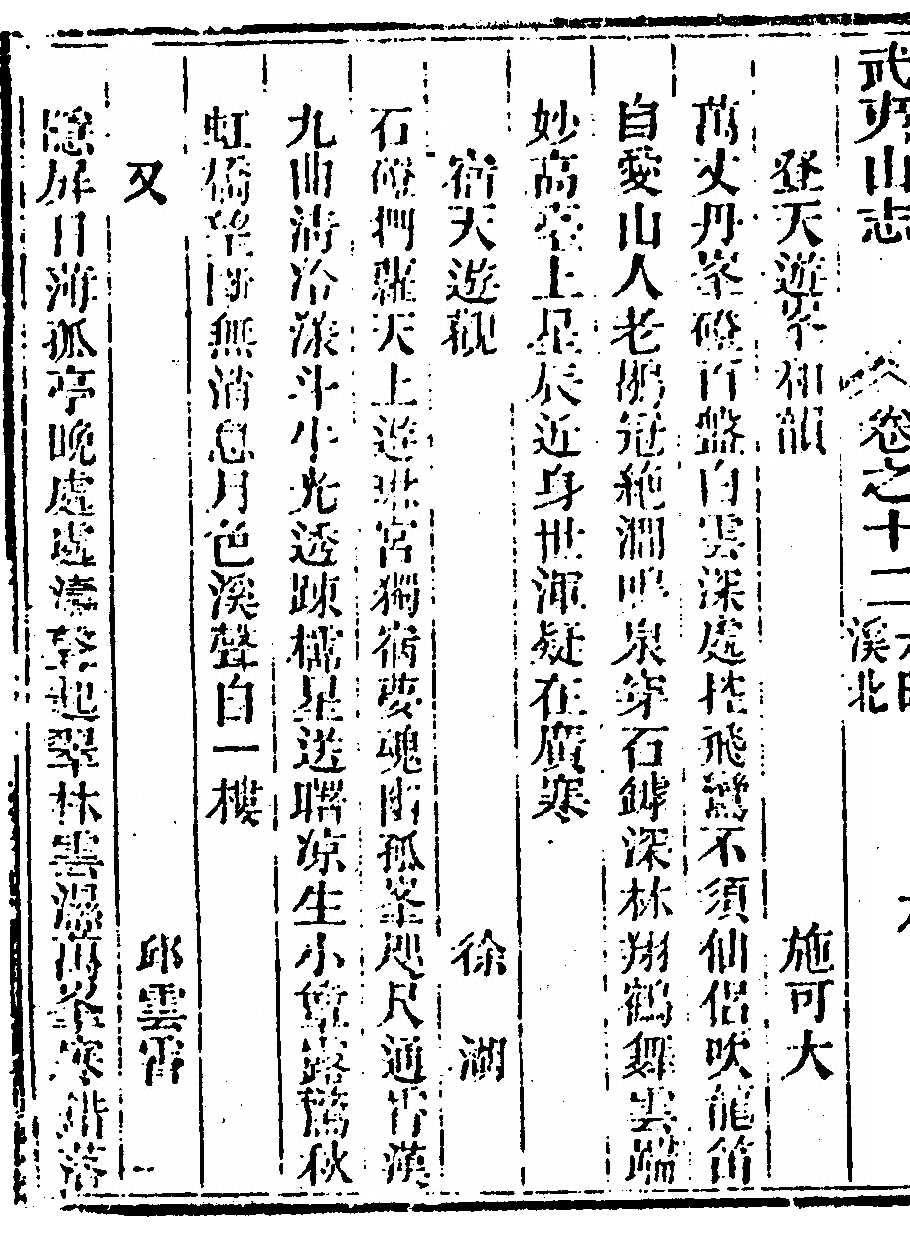 武夷山志 卷之十二 溪北
登天遊峯和韻 施可大
萬丈丹峯磴百盤白雲深處控飛鸞不須仙侣吹龍笛
自愛山人老鶡冠絶澗鳴泉穿石罅深林翔鶴舞雲端
妙高臺上星辰近身世渾疑在廣寒
宿天遊觀 徐湖
石磴捫蘿天上遊琳宮獨宿夢魂幽孤峯咫尺通霄漢
九曲清泠漾斗牛光透疎櫺星送曙凉生小簟露驚秋
虹橋望斷無消息月色溪聲自一樓
又 邱雲霄
隱屏日薄孤亭晚處處濤聲起翠林雲濕萬峯寒錯落